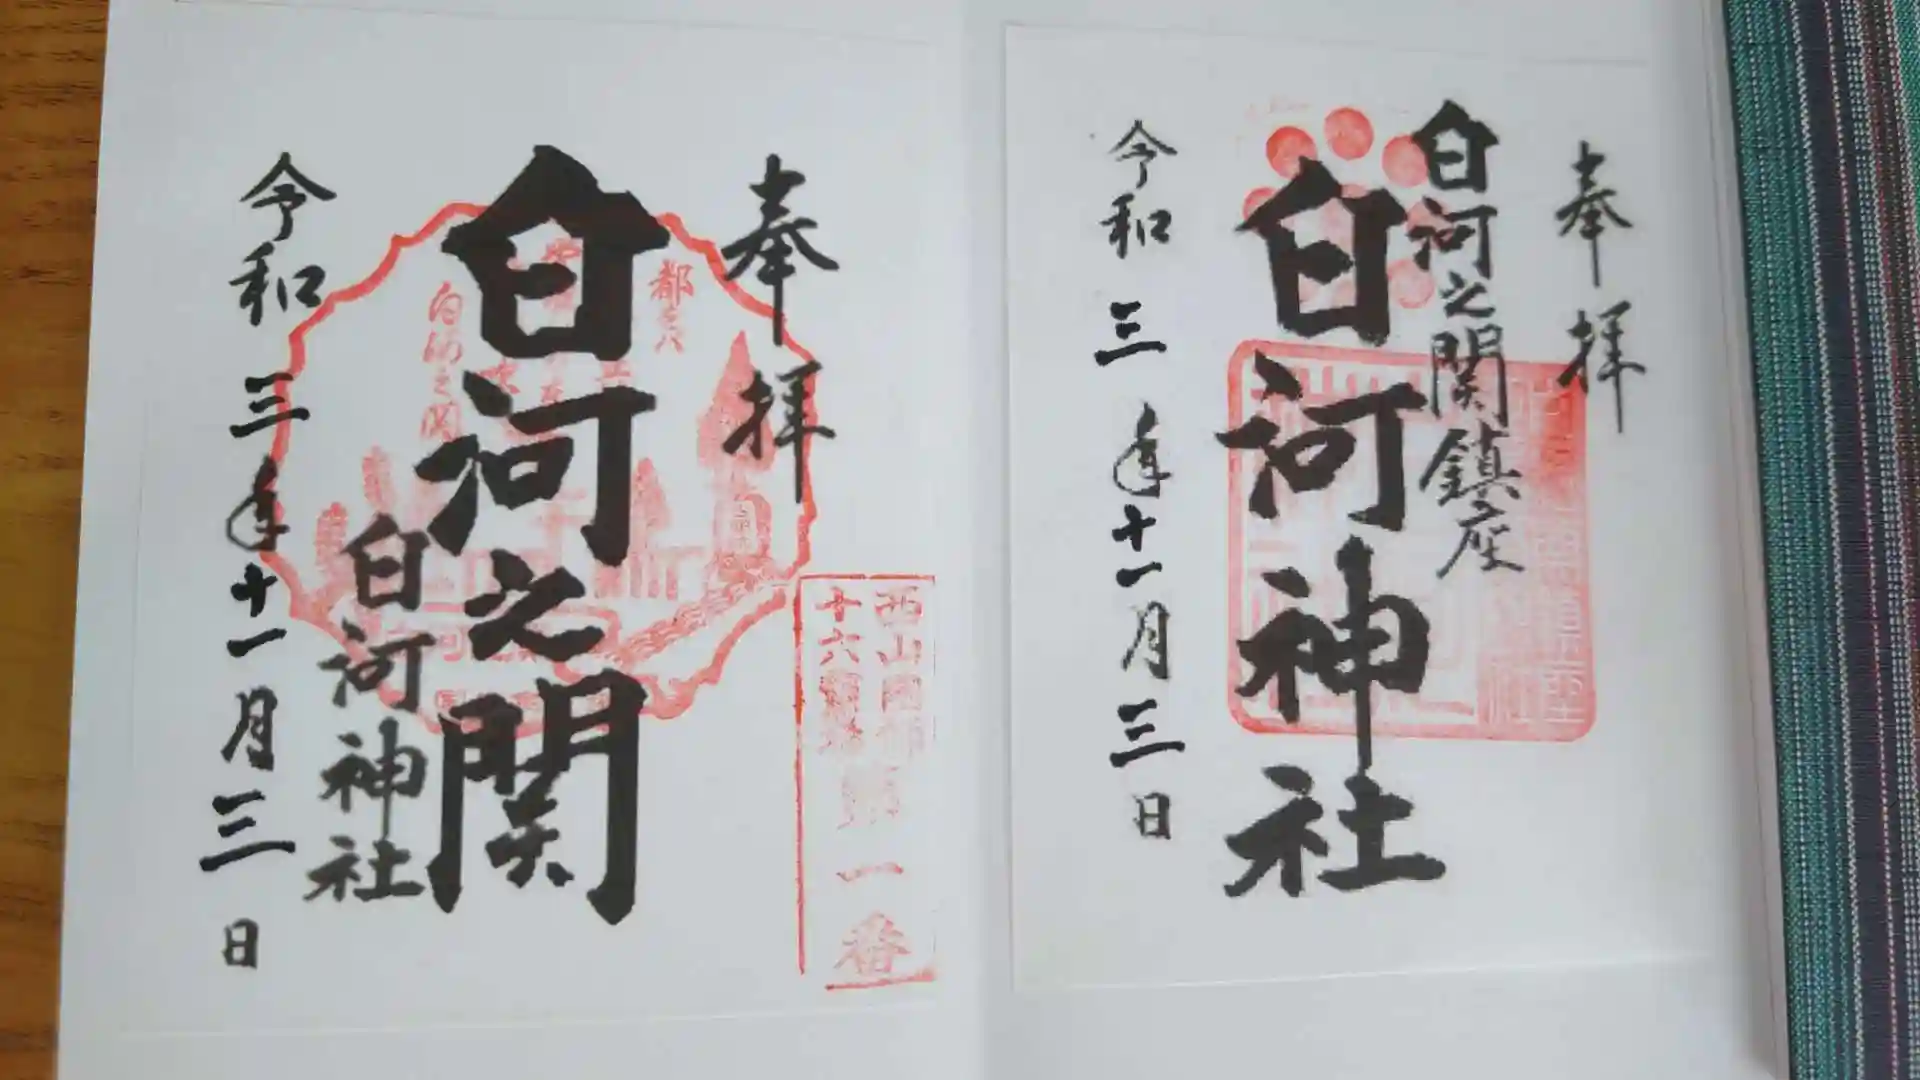 奉拝
白河之関鎮座
白河神社
令和三年十一月三日
奉拝
白河之関
白河神社
令和三年十一月三日
白河之関
西山国師
十六霊場
第一番